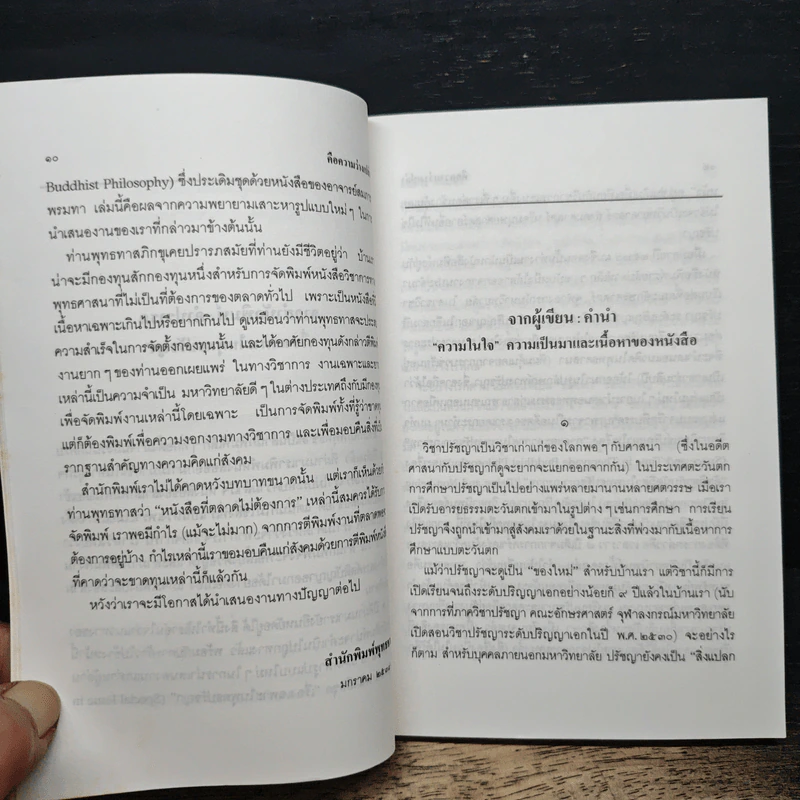 ๑๐
คือความว่าง
Buddhist Philosophy) ซึ่งประเดิมชุดด้วยหนังสือของอาจารย์สมภาร
พรมทา เล่มนี้คือผลจากความพยายามเสาะหารูปแบบใหม่ๆ ในการ
นำเสนองานของเราที่กล่าวมาข้างต้นนั้น
ท่านพุทธทาสภิกขุเคยปรารภสมัยที่ท่านยังมีชีวิตอยู่ว่า บ้านเรา
น่าจะมีกองทุนสักกองทุนหนึ่งสำหรับการจัดพิมพ์หนังสือวิชาการทาง
พุทธศาสนาที่ไม่เป็นที่ต้องการของตลาดทั่วไป เพราะเป็นหนังสือที่
เนื้อหาเฉพาะเกินไปหรือยากเกินไป ดูเหมือนว่าท่านพุทธทาสจะประสบ
ความสำเร็จในการจัดตั้งกองทุนนั้น และได้อาศัยกองทุนดังกล่าวตีพิมพ์
งานยากๆ ของท่านออกเผยแพร่ ในทางวิชาการ งานเฉพาะและยาก
เหล่านี้เป็นความจำเป็น มหาวิทยาลัยดีๆ ในต่างประเทศถึงกับมีกองทุน
เพื่อจัดพิมพ์งานเหล่านี้โดยเฉพาะ เป็นการจัดพิมพ์ทั้งที่รู้ว่าขาดทุน
แต่ก็ต้องพิมพ์เพื่อความงอกงามทางวิชาการ และเพื่อมอบคืนสิ่งที่เป็น
รากฐานสำคัญทางความคิดแก่สังคม
สำนักพิมพ์เราไม่ได้คาดหวังบทบาทขนาดนั้น แต่เราก็เห็นด้วยกับ
ท่านพุทธทาสว่า “หนังสือที่ตลาดไม่ต้องการ” เหล่านี้สมควรได้รับการ
จัดพิมพ์ เราพอมีกำไร (แม้จะไม่มาก) จากการตีพิมพ์งานที่ตลาดพอ
ต้องการอยู่บ้าง กำไรเหล่านี้เราขอมอบคืนแก่สังคมด้วยการตีพิมพ์หนังสือ
ที่คาดว่าจะขาดทุนเหล่านี้ก็แล้วกัน
หวังว่าเราจะมีโอกาสได้นำเสนองานทางปัญญาต่อไป
สำนักพิมพ์พุทธ
มกราคม
จากผู้เขียน : คำนำ
“ความในใจ” ความเป็นมาและเนื้อหาของหนังสือ
๑
วิชาปรัชญาเป็นวิชาเก่าแก่ของโลกพอๆ กับศาสนา (ซึ่งในอดีต
ศาสนากับปรัชญาก็ดูจะยากจะแยกออกจากกัน) ในประเทศตะวันตก
การศึกษาปรัชญาเป็นไปอย่างแพร่หลายมานานหลายศตวรรษ เมื่อเรา
เปิดรับอารยธรรมตะวันตกเข้ามาในรูปต่างๆ เช่นการศึกษา การเรียน
ปรัชญาจึงถูกนำเข้ามาสู่สังคมเราด้วยในฐานะสิ่งที่พ่วงมากับเนื้อหาการ
ศึกษาแบบตะวันตก
แม้ว่าปรัชญาจะดูเป็น “ของใหม่” สำหรับบ้านเรา แต่วิชานี้ก็มีการ
เปิดเรียนจนถึงระดับปริญญาเอกอย่างน้อยก็ ๙ ปีแล้วในบ้านเรา (นับ
จากการที่ภาควิชาปรัชญา คณะอักษรศาสตร์ จุฬาลงกรณ์มหาวิทยาลัย
เปิดสอนวิชาปรัชญาระดับปริญญาเอกในปี พ.ศ. ๒๕๓๐) จะอย่างไร
ก็ตาม สำหรับบุคคลภายนอกมหาวิทยาลัย ปรัชญายังคงเป็น “สิ่งแปลก